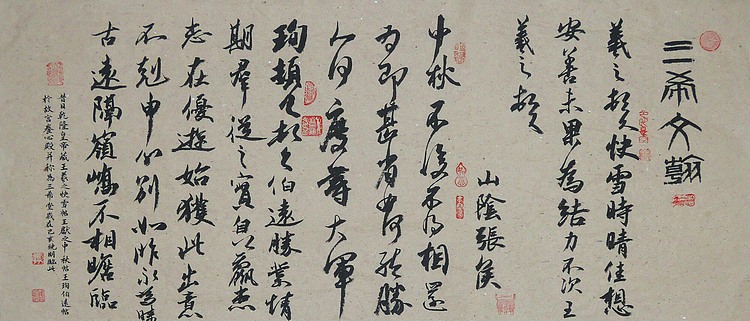 三希文翰
羲之頓首快雪時晴佳想
安善未果為結力不次王
羲之頓首
山陰張侯
中秋不復不得相還
為即甚省如何然勝
人何慶等大軍
珣頓首頓首伯遠勝業情
期群從之寶自以羸患
志在優遊始獲此出意
不剋申分別如昨永為疇
古遠隔嶺嶠不相瞻臨
昔日乾隆皇帝藏王羲之快雪帖王獻之中秋帖王珣伯遠帖
於故宮養心殿并称為三希堂歲在乙亥臨此